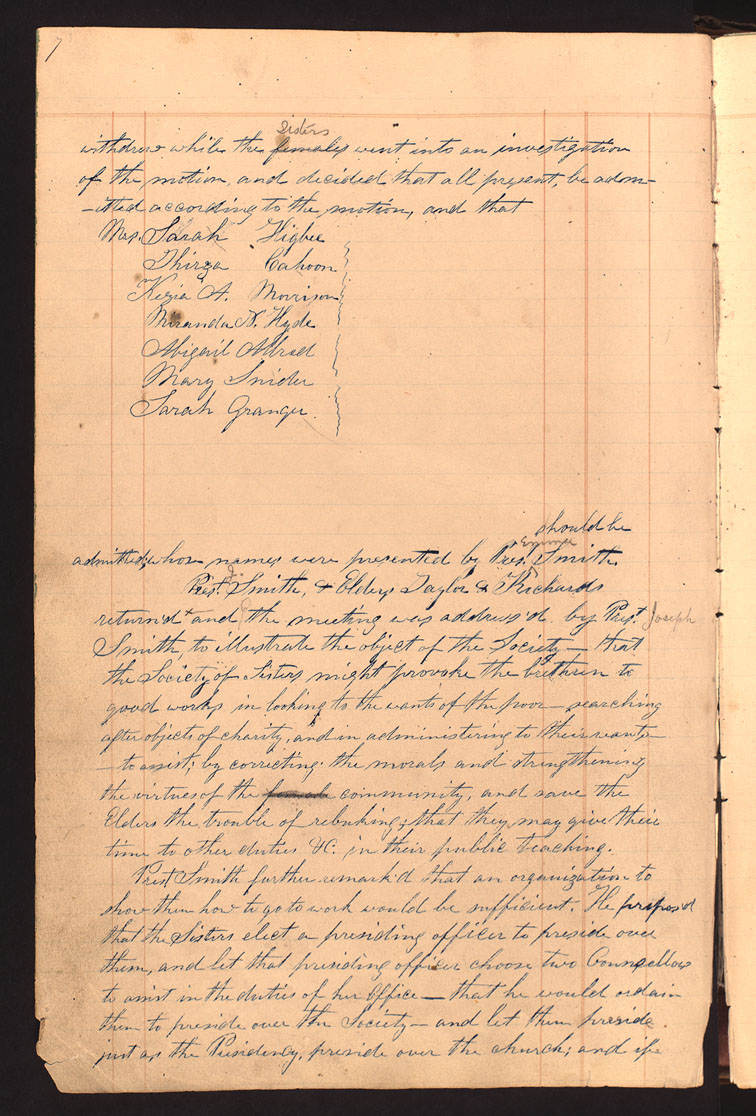 7
Sisters
withdrew while the females went into an investigation
of the motion, and decided that all present, be adm-
-itted according to the motion, and that
Mrs. Sarah Higbee
Thirza Cahoon
Kezia A. Morrison
Miranda N. Hyde
Abigail Allred
Mary Snider
Sarah Granger.
should be
Emma
admitted; whose names were presented by Pres. Smith.
J.
Prest. Smith, & Elders Taylor & Richards
return'd and the meeting was address'd by Prest. Joseph
Smith, to illustrate the object of the Society — that
the Society of Sisters might provoke the brethren to
good works in looking to the wants of the poor — searching
after objects of charity, and in administering to their wants —
— to assist; by correcting the morals and strengthening
the virtues of the female community, and save the
Elders the trouble of rebuking; that they may give their
time to other duties &C. in their public teaching.
Prest. Smith further remark'd that an organization to
show them how to go to work would be sufficient. He propos'd
that the Sisters elect a presiding officer to preside over
them, and let that presiding officer choose two Counsellors
to assist in the duties of her Office — that he would ordain
them to preside over the Society — and let them preside
just as the Presidency, preside over the church; and if